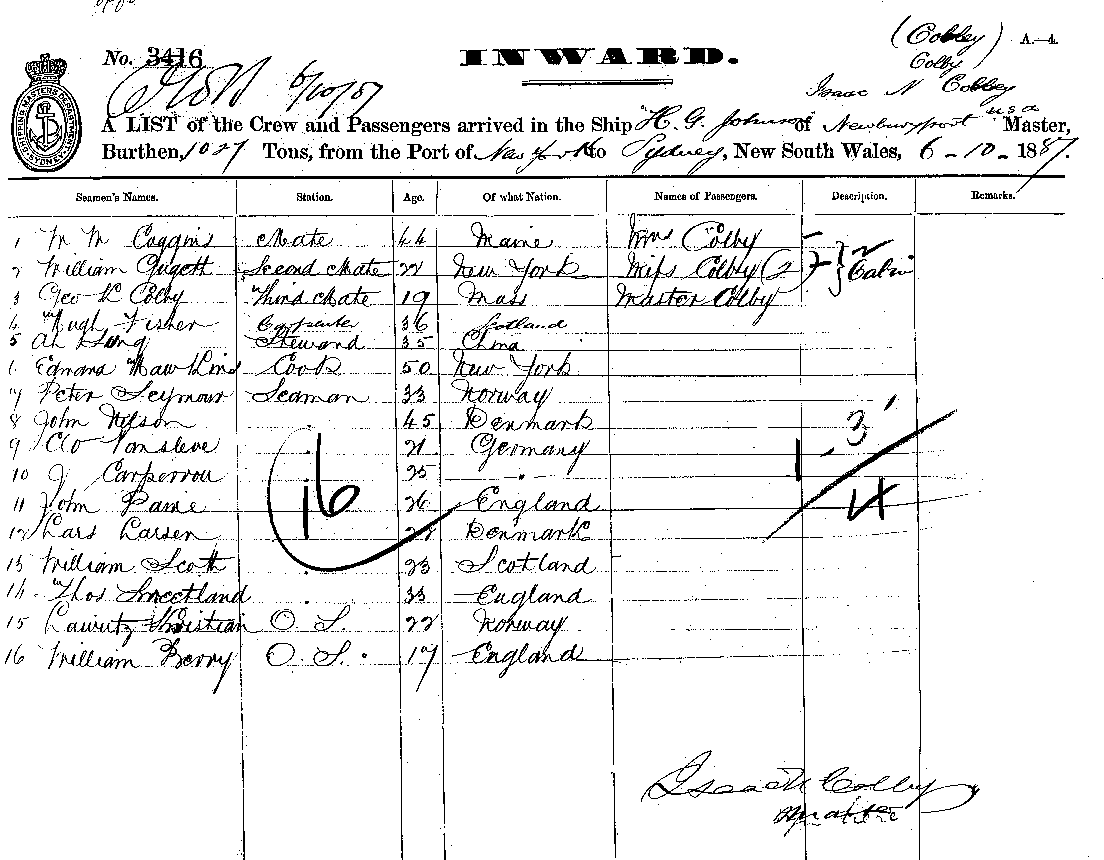 (Cobley) A.—4.
No. 3416 INWARD. Colby
6/10/87 Isaac N Cobley
A LIST of the Crew and Passengers arrived in the Ship H. G. Johnson of Newburyport USA Master,
Burthen, 1027 Tons, from the Port of New York to Sydney, New South Wales, 6-10-1887.
SHIPPING MASTERS DEPARTMENT SYDNEY
Seamen's Names. Station. Age. Of what Nation. Names of Passengers. Description. Remarks.
1 M M Coggins Mate 44 Maine Mrs Colby
2 William Second Mate 22 New York Miss Colby (2) 2 Cabin
3 Geo K Colby Third Mate 19 Mass Master Colby
4 Hugh Fisher Carpenter 36 Scotland
5 Ah Sing Steward 35 China
6 Edmand Hawkins Cook 50 New York
7 Peter Seymour Seaman 33 Norway
8 John Nelson 45 Denmark
9 Vansleve 21 Germany
10 J 25
11 John Paine 26 England
12 Lars Larsen Denmark
13 William Scott 23 Scotland
14 Thos Sweetland 33 England
15 Kristian O. S. 22 Norway
16 William Berry O. S. 17 England
16
1 3
4
Isaac N Colby
Master